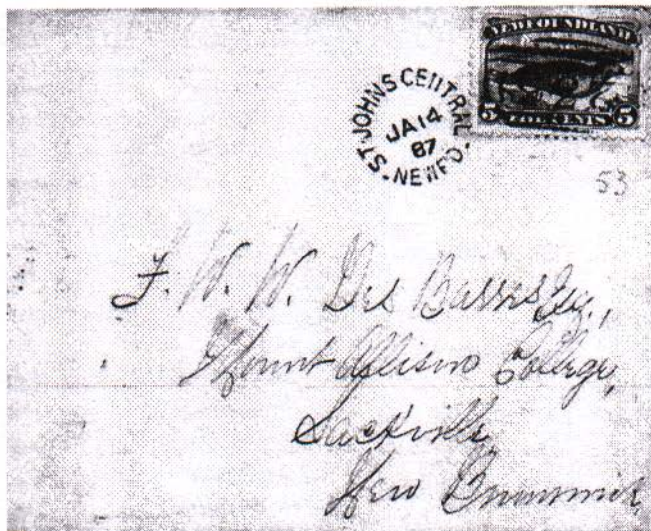 NEWFOUNDLAND
5 FIVE CENTS 5
ST JOHNS CENTRAL
JA 14
87
NEWF'D.
53
F. W. W. Des Barres Esq.,
Mount Allison College,
Sackville
New Brunswick